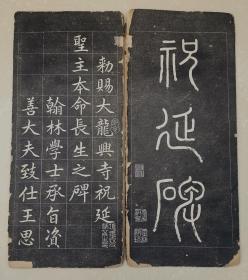 祝延碑
勅賜大龍興寺祝延
聖主本命長生之碑
翰林學士承旨資
善大夫致仕王思